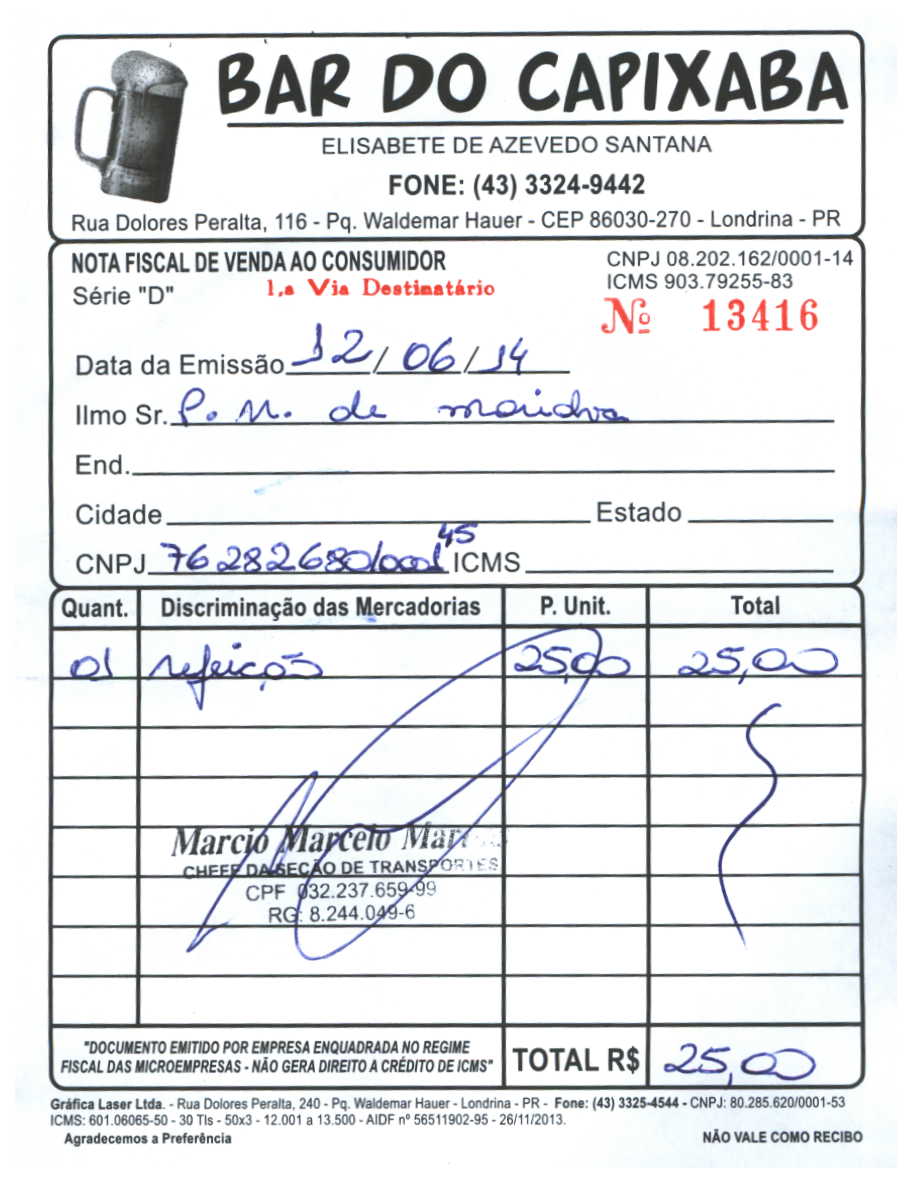 BAR DO CAPIXABA
ELISABETE DE AZEVEDO SANTANA
FONE: (43) 3324-9442
Rua Dolores Peralta, 116 - Pq. Waldemar Hauer - CEP 86030-270 - Londrina - PR
NOTA FISCAL DE VENDA AO CONSUMIDOR CNPJ 08.202.162/0001-14
Série "D" 1.a Via Destinatário ICMS 903.79255-83
Nº 13416
Data da Emissão 12/06/14
Ilmo Sr. P. M. de
End.
Cidade Estado
CNPJ 76282680/0001 45 ICMS
Quant. Discriminação das Mercadorias P. Unit. Total
01 refeição 25,00 25,00
Marcio Marcelo
CHEFE DA SEÇÃO DE TRANSPORTES
CPF 032.237.659-99
RG: 8.244.049-6
"DOCUMENTO EMITIDO POR EMPRESA ENQUADRADA NO REGIME
FISCAL DAS MICROEMPRESAS - NÃO GERA DIREITO A CRÉDITO DE ICMS" TOTAL R$ 25,00
Gráfica Laser Ltda. - Rua Dolores Peralta, 240 - Pq. Waldemar Hauer - Londrina - PR - Fone: (43) 3325-4544 - CNPJ: 80.285.620/0001-53
ICMS: 601.06065-50 - 30 Tls - 50x3 - 12.001 a 13.500 - AIDF nº 56511902-95 - 26/11/2013.
Agradecemos a Preferência NÃO VALE COMO RECIBO